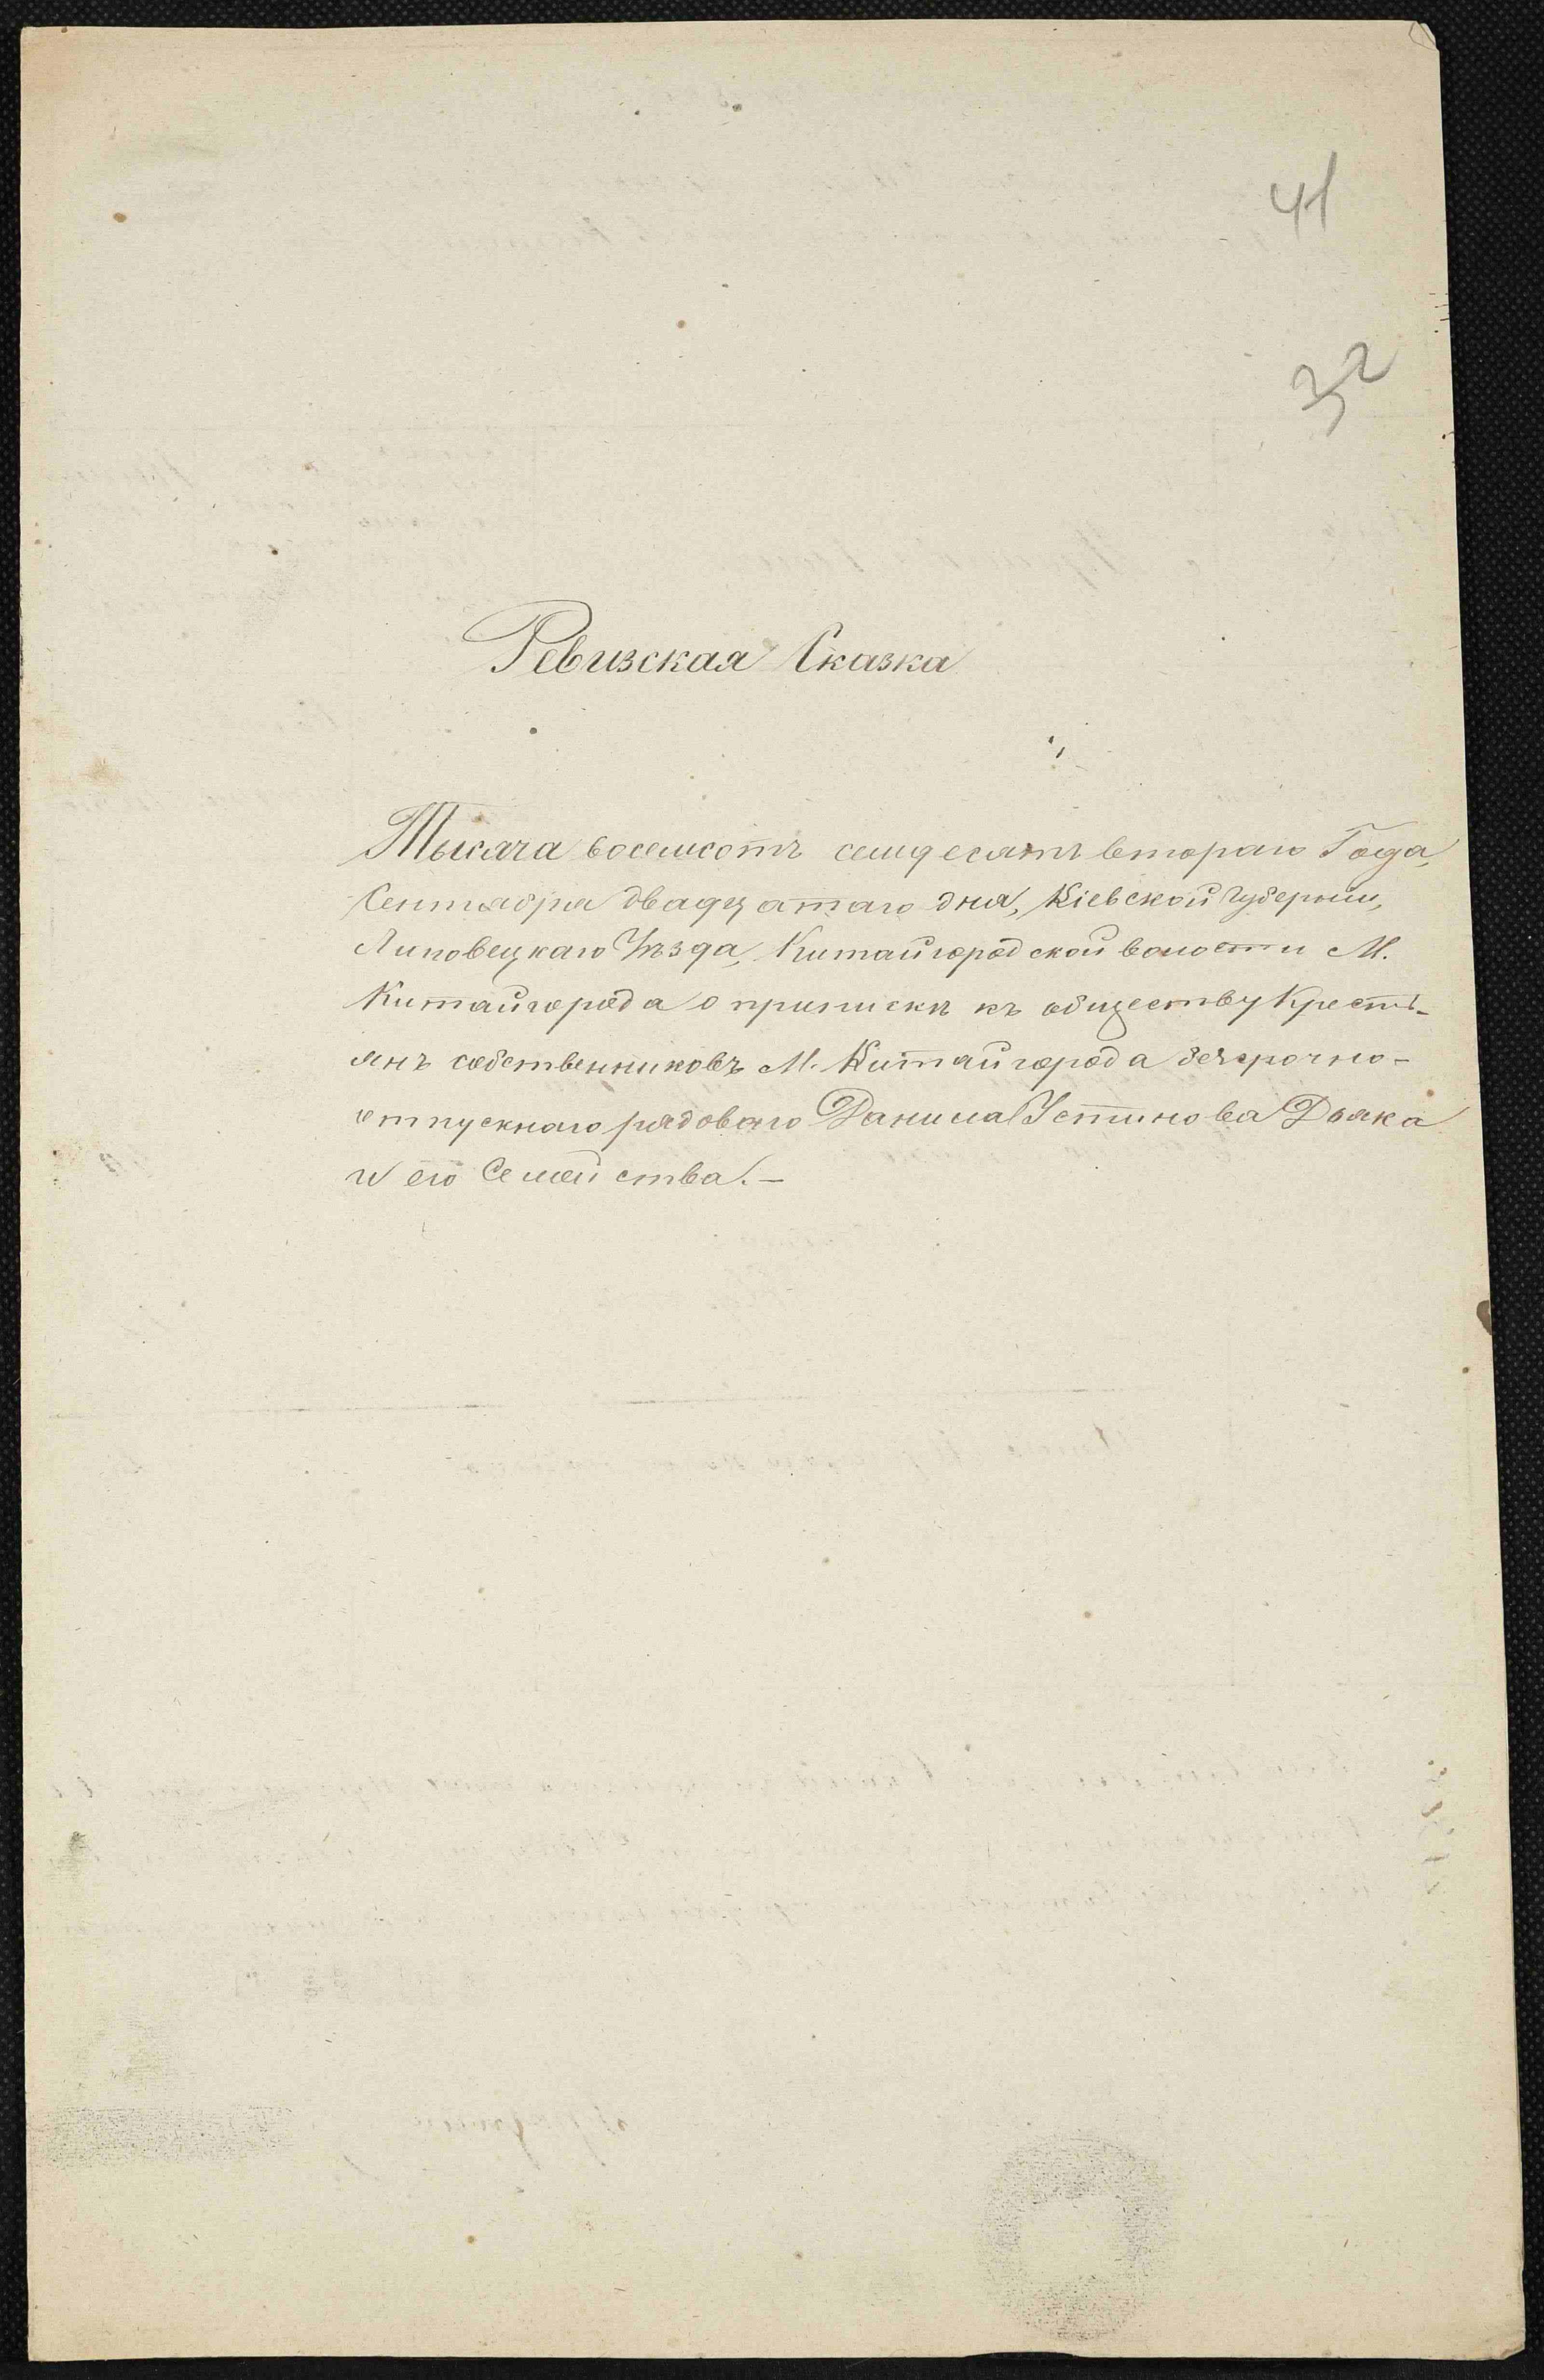 41
32
Ревизская Сказка
Тысяча восемсотъ семдесятъ втораго Года,
Сентября двадцатаго дня, Кіевской Губерніи,
Липовецкаго Уѣзда, Китайгородской волости М.
Китайгорода о припискѣ къ обществу Кресть-
янъ собственниковъ М. Китайгорода безсрочно-
отпускнаго рядоваго Данила Устинова Дьяка
и его Семейства.—